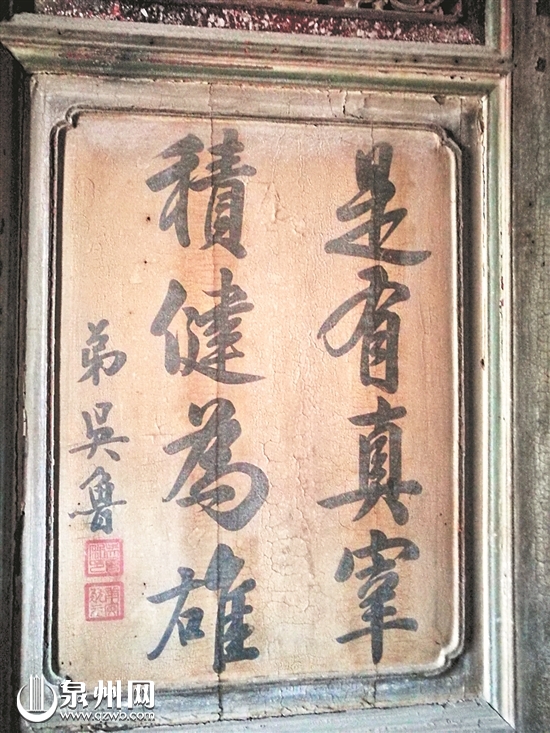 是有真宰
積健為雄
弟吳魯
泉州网
www.qzwb.com